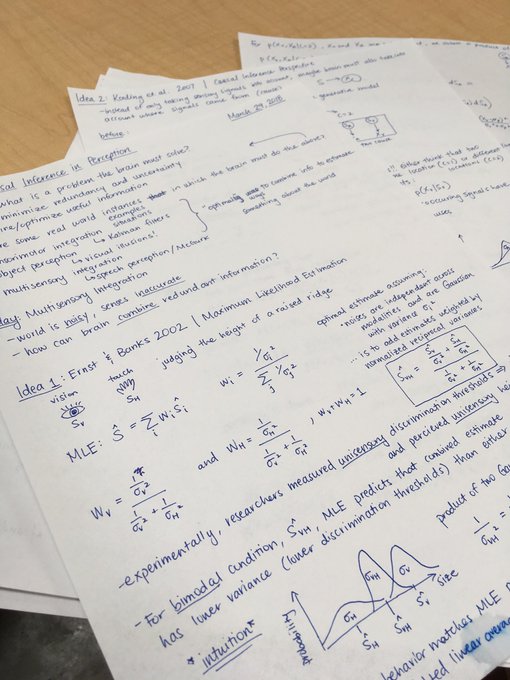 For p(Xv, XH|C=2), Xv and XH are
Idea 2: Körding et al. 2007 | Causal Inference Perspective
- instead of only taking sensory signals into account, maybe brain must also
account where signals came from (cause)
March 29, 2018
before:
S → Xi
generative model
C=2
two cause
either think that two
location (C=1) or different
locations (C=2)
P(Xi|Si)
occurring signals have
Causal Inference in Perception
what is a problem the brain must solve?
minimize redundancy and uncertainty
/optimize useful information
some real world instances in which the brain must do the above?
examples
situations
sensorimotor integration
↳ Kalman filters
object perception ↳ visual illusions!
multisensory integration ↳ speech perception/McGurk
optimal ways to combine info to estimate
something about the world
Multisensory Integration
- world is noisy, senses inaccurate
- how can brain combine redundant information?
Idea 1: Ernst & Banks 2002 | Maximum Likelihood Estimation
vision
touch
judging the height of a raised ridge
Sv
SH
optimal estimate assuming:
· noises are independent across
modalities and are Gaussian
with variance σi²
· is to add estimates weighted by
normalized reciprocal variances
MLE: Ŝ = Σi wi Ŝi
wi = (1/σi²) / (Σj 1/σj²)
ŜVH = (Ŝv/σv² + ŜH/σH²) / (1/σv² + 1/σH²)
Wv = (1/σv²) / (1/σv² + 1/σH²) and WH = (1/σH²) / (1/σv² + 1/σH²) , wv + wH = 1
- experimentally, researchers measured unisensory discrimination thresholds ⇒
and percieved unisensory
- For bimodal condition, ŜVH, MLE predicts that combined estimate
has lower variance (lower discrimination thresholds) than either
*intuition*
probability
σH
σVH
σv
size
ŜH
ŜVH
Ŝv
product of two
1/σVH² =
behavior matches MLE
linear